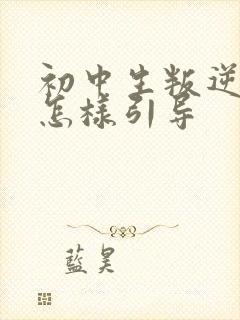 初中生叛逆
怎様引导
藍昊